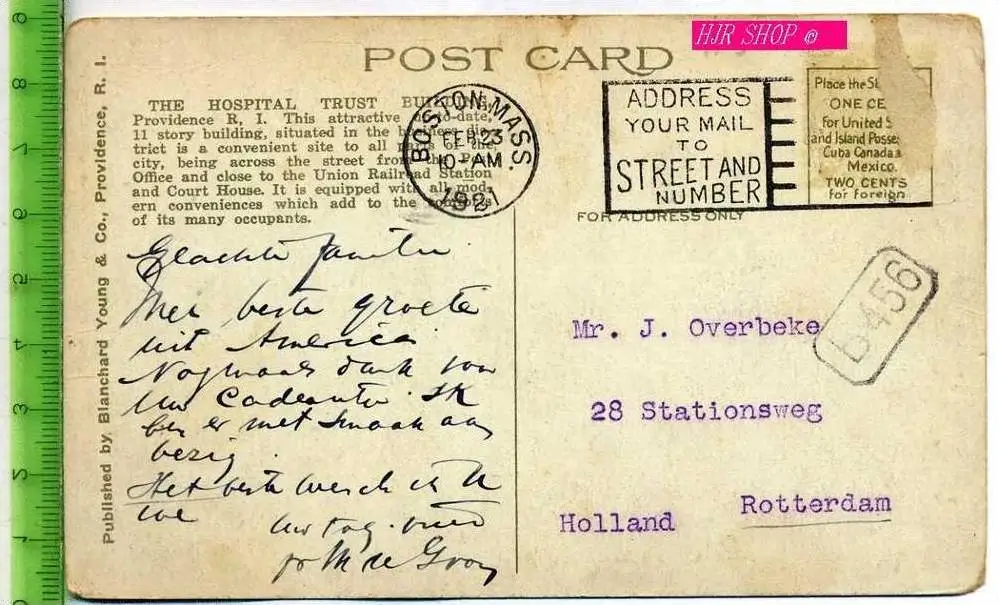 HJR SHOP ©
POST CARD
THE HOSPITAL TRUST BUILDING,
Providence R, I. This attractive up-to-date,
11 story building, situated in the business dis-
trict is a convenient site to all parts of the
city, being across the street from the Post
Office and close to the Union Railroad Station
and Court House. It is equipped with all mod-
ern conveniences which add to the comforts
of its many occupants.
Published by, Blanchard Young & Co., Providence, R. I.
BOSTON, MASS.
FEB 23
10-AM
192
ADDRESS
YOUR MAIL
TO
STREET AND
NUMBER
Place the St
ONE CE
for United S
and Island Posse
Cuba Canada
Mexico.
TWO CENTS
for foreign
FOR ADDRESS ONLY
Geachte familie
Met beste groeten
uit America
Nogmaals dank voor
Uw Cadeautu. Ik
ben er met smaak aan
bezig.
Het beste wensch ik U
toe
Uw
b 456
Mr. J. Overbeke
28 Stationsweg
Rotterdam
Holland